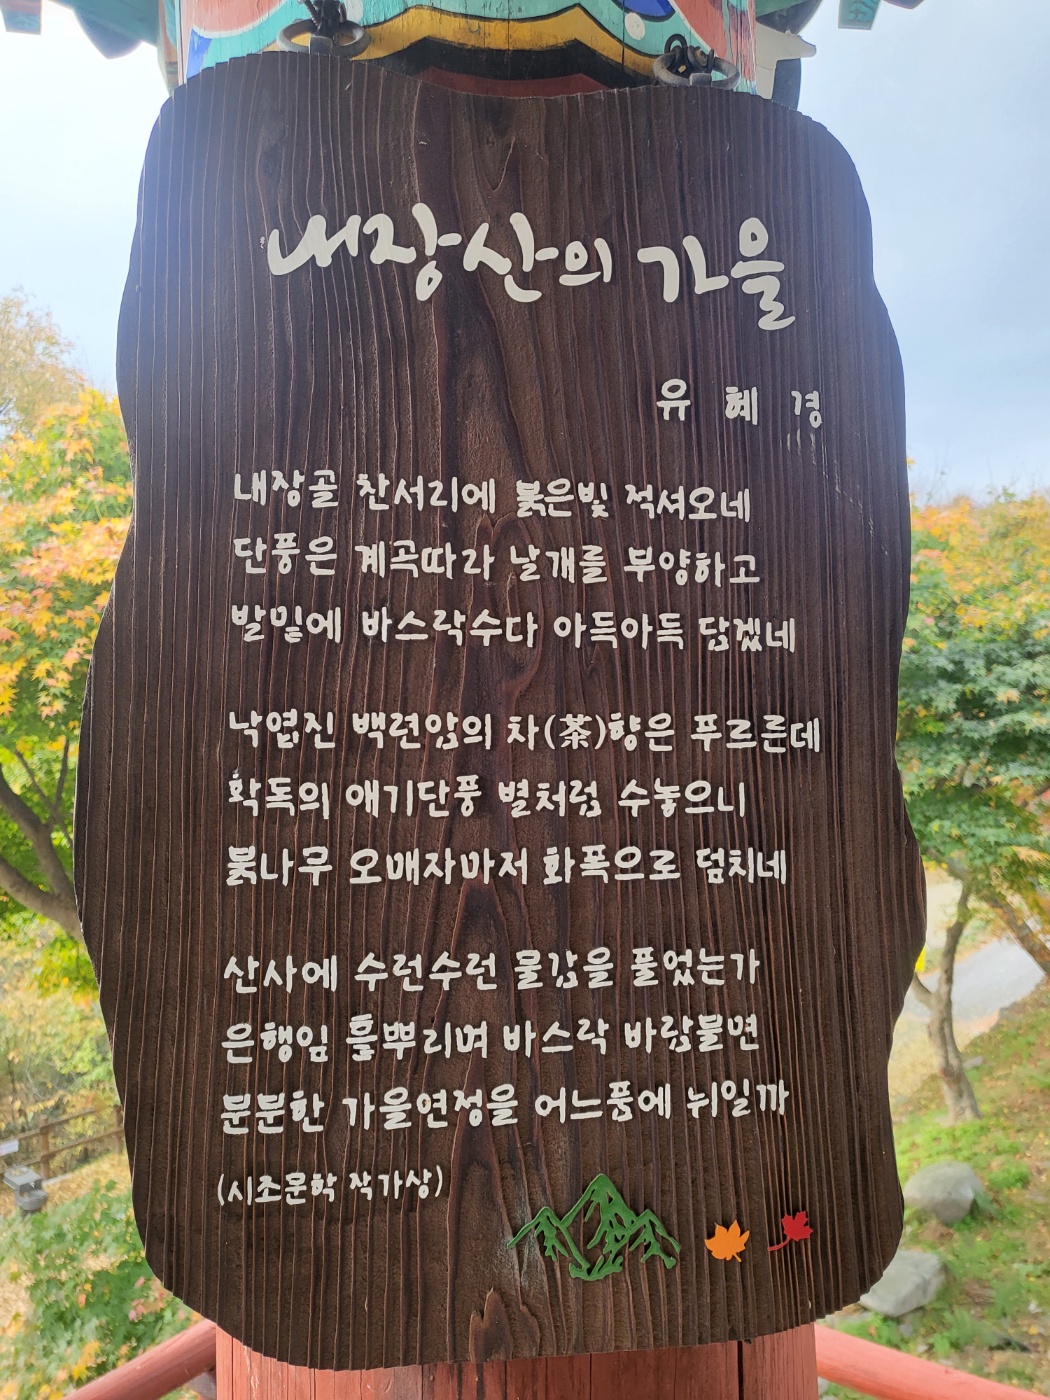 내장산의 가을
유 혜 경
내장골 찬서리에 붉은빛 적셔오네
단풍은 계곡따라 날개를 부양하고
발밑에 바스락수다 아득아득 담겠네
낙엽진 백련암의 차(茶)향은 푸르른데
확독의 애기단풍 별처럼 수놓으니
붉나무 오매자마저 화폭으로 덤치네
산사에 수런수런 물감을 풀었는가
은행잎 흩뿌리며 바스락 바람불면
분분한 가을연정을 어느품에 뉘일까
(시조문학 작가상)